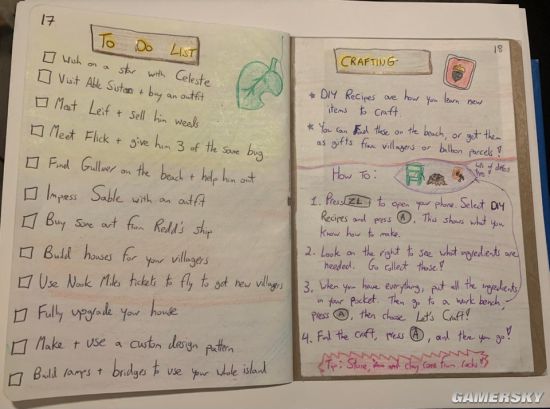 17
To Do List
Wish on a star with Celeste
Visit Able Sisters + buy an outfit
Meet Leif + sell him weeds
Meet Flick + give him 3 of the same bug
Find Gulliver on the beach + help him out
Impress Sable with an outfit
Buy some art from Redd's ship
Build houses for your villagers
Use Nook Miles tickets to fly to get new villagers
Fully upgrade your house
Make + use a custom design pattern
Build ramps + bridges to use your whole island
18
CRAFTING
* DIY Recipes are how you learn new
items to craft.
* You can find these on the beach, or get them
as gifts from villagers or balloon parcels!
How To:
lots of
1. Press ZL to open your phone. Select DIY
Recipes and press A. This shows what you
know how to make.
2. Look on the right to see what ingredients are
needed. Go collect those!
3. When you have everything, put all the ingredients
in your pocket. Then go to a work bench,
press A, then choose Let's Craft!
4. Find the craft, press A, and there you go!
Tip: Stone, and clay come from rocks!
GAMERSKY